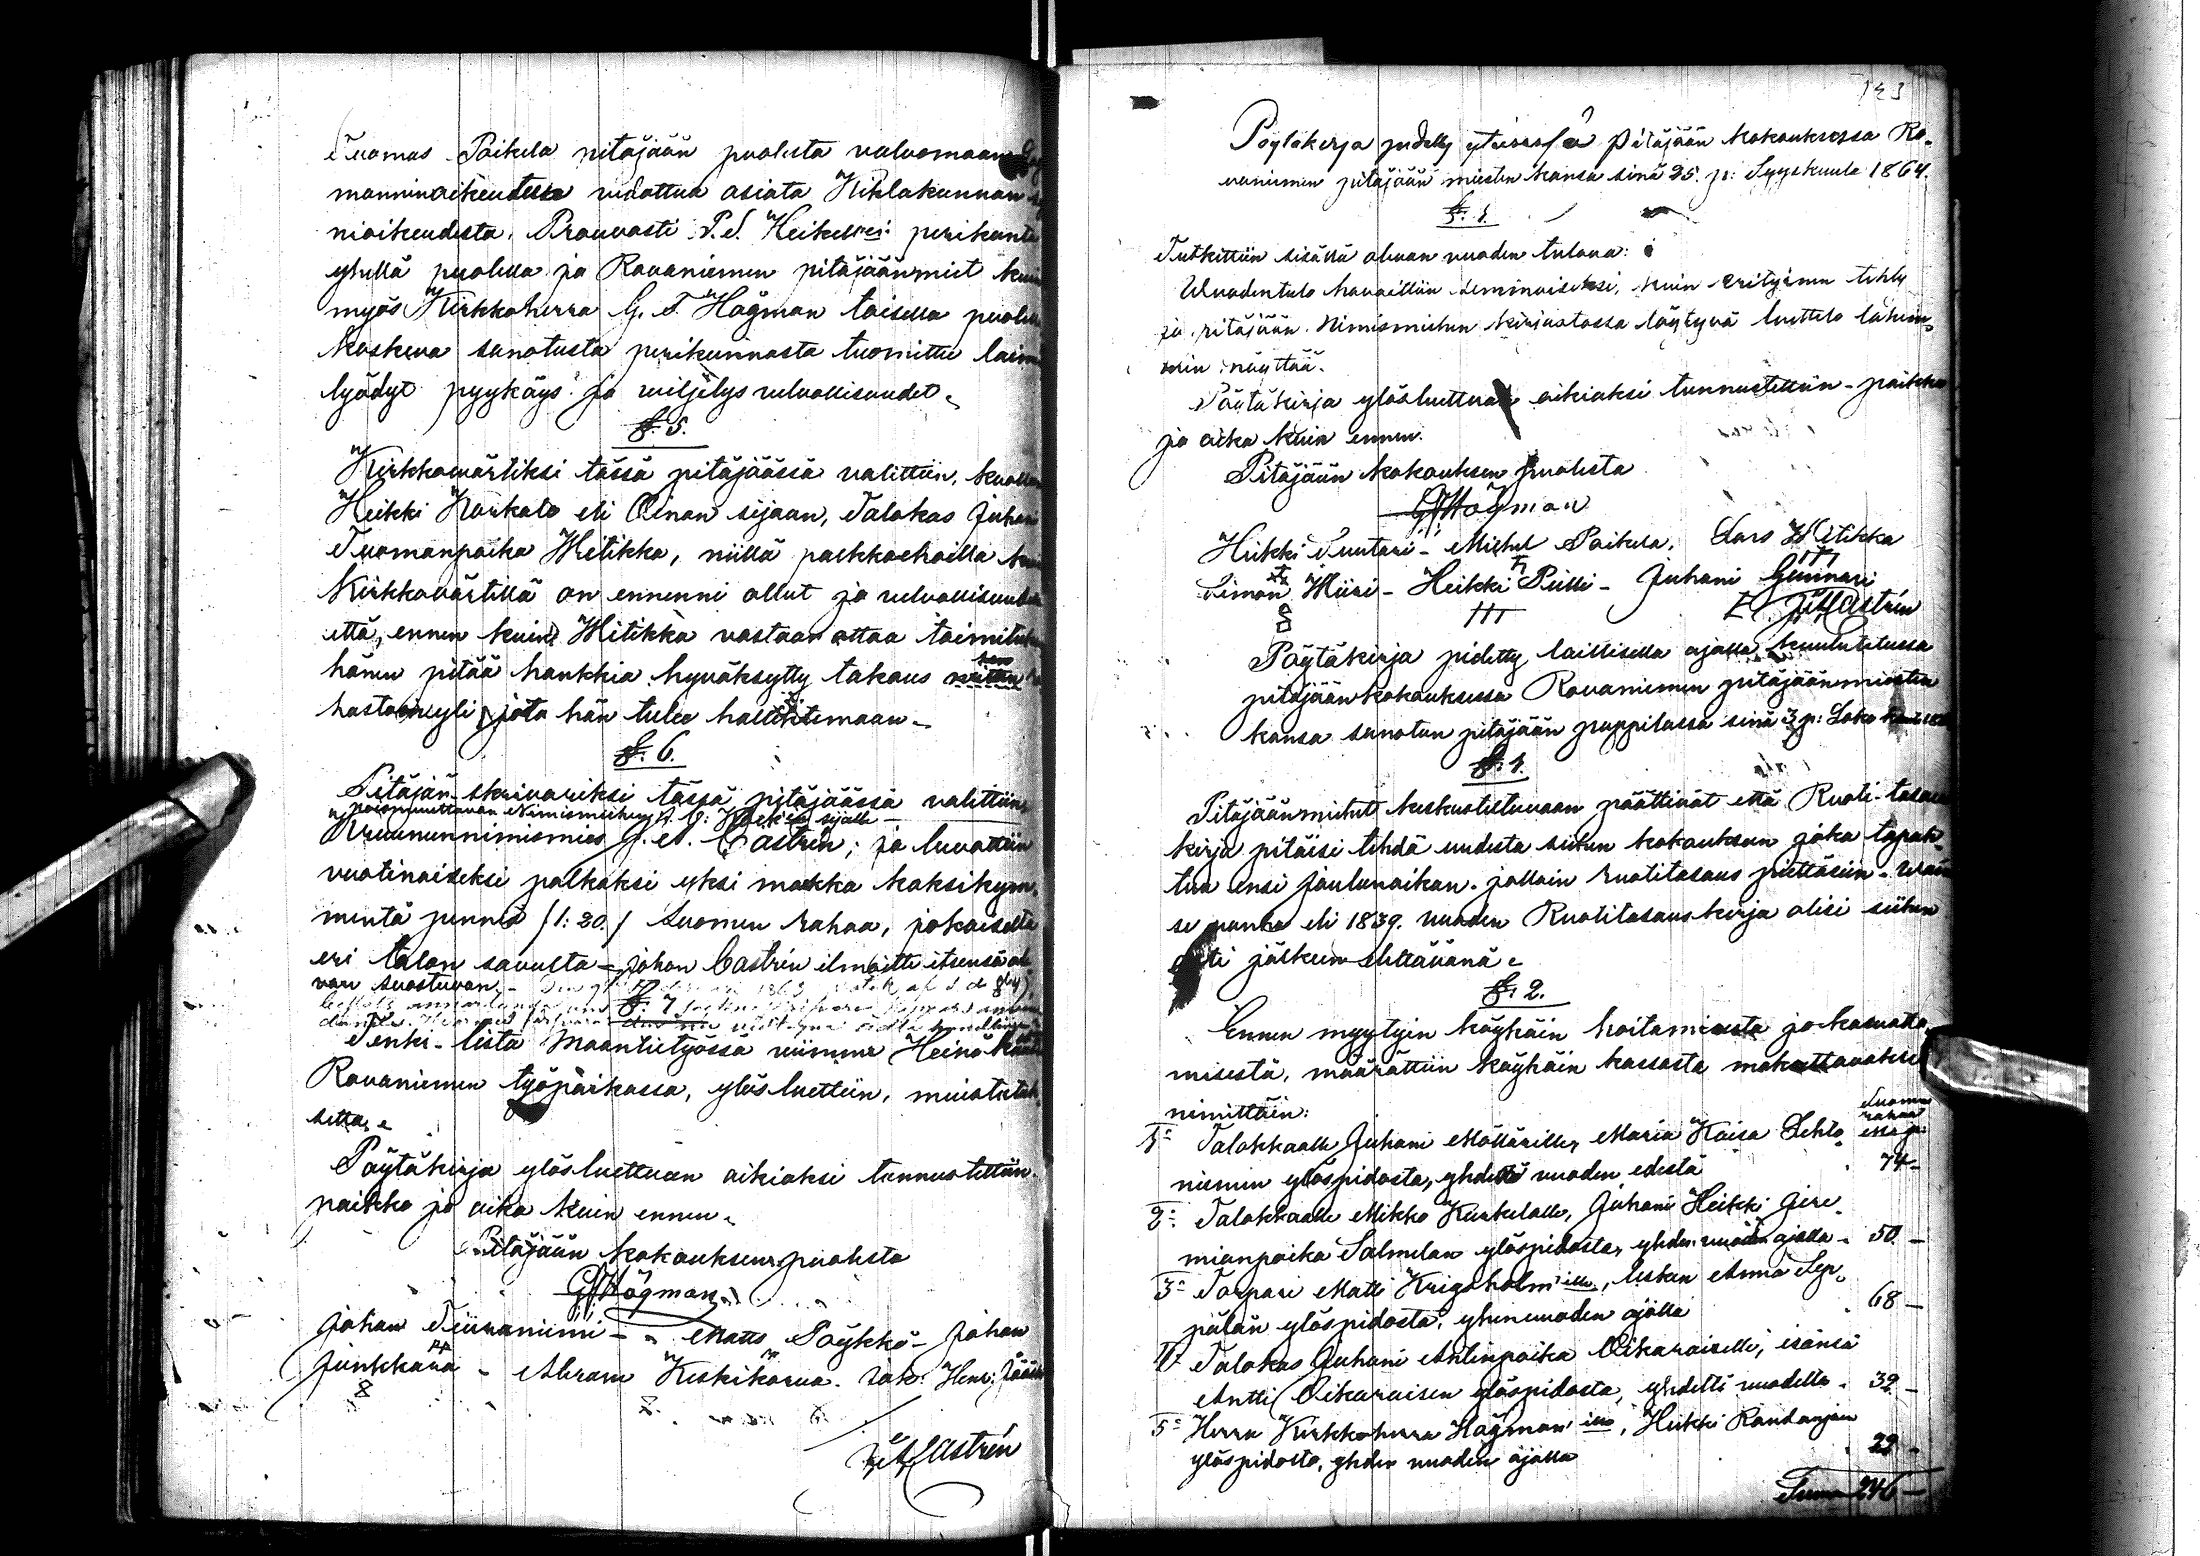 Tuomas Paikela pitäjään puolesta valvomaan
manninoikeudessa vedottua asiata Kihlakunnan
nioikeudesta, Prouvasti P. J. Heikel vei: perikunta
yhellä puolella ja Rovaniemen pitäjäänmiet kuin
myös Kirkkoherra G. F. Högman toisella puolella
koskeva sanotusta perikunnasta tuomittu laimin
lyödyt pyykäys ja viljelys velvollisuudet.
§. 5.
Kirkkovärtiksi tässä pitäjäässä valittiin, kuollen
Heikki Korkalo eli Oinan sijaan, Talokas Juhani
Tuomanpoika Wiitikka, niillä palkkaehoilla kuin
Kirkkovärtillä on ennenni ollut ja velvollisuudella
että, ennen kuin Wiitikka vastaan ottaa toimituksen
hänen pitää hankkia hyväksytty takaus sen
hastoin yli, jota hän tulee hallihtemaan.
§. 6.
Pitäjän skrivariksi tässä pitäjäässä valittiin
poismuuttavan Nimismiehen sijalle
Kruununnimismies J. A. Castrén; ja luvattiin
vuotinaiseksi palkaksi yksi markka kaksikym-
mentä penniä /1: 20./ Suomen rahaa, jokaiselta
eri talon savulta – Johan Castrén ilmoitti itsensä ol
van suostuvan.
§. 7
Tenki-lista Maantietyössä viimme Heinä kuussa
Rovaniemen työpaikassa, ylösluettiin, muistutuk
setta.
Pöytäkirja ylösluettuun oikiaksi tunnustettiin.
paikka ja aika kuin ennen.
Pitäjään kokouksen puolesta
GFHögman
Johan Tiuraniemi – Matts Pöykkö – Johan
Junkkana – Abram Keskikorva. Isak Henr: Jääskö
J A Castrén
Pöytäkirja pidetty yteisessä pitäjään kokouksessa Ro-
vaniemen pitäjään miesten kansa sinä 25. p: Syyskuuta 1864.
§. 1.
Tutkittiin sisällä olevan vuoden tuloua:
Wuodentulo havaittiin keminaiseksi, kuin erityinen tehty
ja pitäjään Nimismiehen kirjastossa löytyvä luettelo lähem-
min näyttää.
Pöytäkirja ylösluettuna oikiaksi tunnustettiin – paikka
ja aika kuin ennen.
Pitäjään kokouksen puolesta
GFHögman
Heikki Puntari – Michel Paikela, Lars Witikka
Simon Niisi – Heikki Piilli – Juhani Gunnari
J A Castrén
Pöytäkirja pidetty laillisella ajalla kuulutetussa
pitäjäänkokouksessa Rovaniemen pitäjäänmiesten
kansa sanotun pitäjään pappilassa sinä 3 p: Loka
§. 1.
Pitäjäänmiehet keskusteltuvaan päättivät että Ruoti-tasaus
kirja pitäisi tehdä uudesta siihen kokouksen joka tapah-
tuu ensi Joulunaikan, jolloin ruotitasaus piettäsiin. Waan
se vanha eli 1839 vuoden Ruotitasauskirja olisi siihen
asti jälkeen elettävänä.
§. 2.
Ennen myytyin köyhäin hoitamisesta ja kasvatta
misesta, määrättiin köyhäin kassasta maksettavaksi
nimittäin: Suomen rahaa
1:o Talokkaalle Juhani Möllärille, Maria Kaisa Lehto-
niemen ylöspidosta, yhdestä vuoden edestä 74 –
2:o Talokkaalle Mikko Kurkelalle, Juhani Heikki Jere-
mianpoika Salmelan ylöspidosta, yhden vuoden ajalla. 50 –
3:o Torpari Matti Krigsholm'ille, lesken Anna Sep-
pälän ylöspidosta, yhenvuoden ajalla 68 –
4:o Talokas Juhani Antinpoika Oikaraiselle, isänsä
Antti Oikaraisen ylöspidosta, yhdeltä vuodelta. 32 –
5:o Herra Kirkkoherra Högman'ille, Heikki Randanjan
ylöspidosta, yhden vuoden ajalla 22 –
Summa 246 –